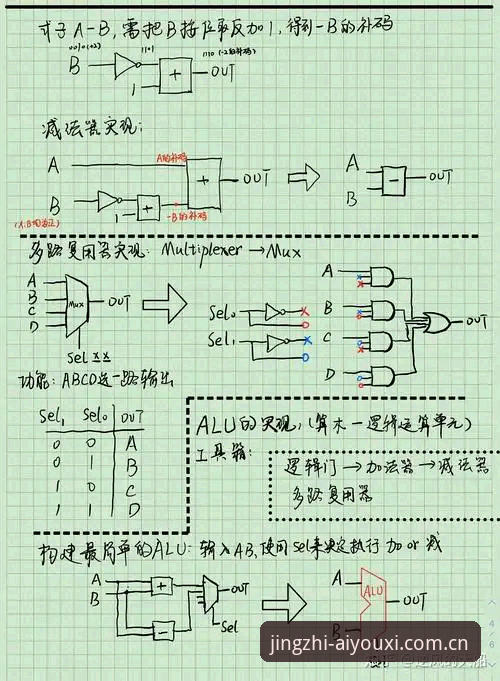 对于A-B, 需把B按位取反加1, 得到-B的补码
0010(+2)
1101
1110(-2的补码)
B
+
1
OUT
减法器实现:
A
A的补码
+
OUT
A
B
-
OUT
B
+
1
-B的补码
(A、B均为正)
多路复用器实现: Multiplexer → Mux
A
B
C
D
Mux
OUT
Sel XX
Sel₀
Sel₁
A
B
C
D
OUT
功能: ABCD选一路输出
Sel₁ Sel₀ OUT
0 0 A
0 1 B
1 0 C
1 1 D
ALU的实现, (算术-逻辑运算单元)
工具箱:
逻辑门 → 加法器 → 减法器
多路复用器
构建最简单的ALU: 输入AB, 使用Sel来决定执行加or减
A
B
+
-
OUT
Sel
A
B
ALU
OUT
jingzhi-aiyouxi.com.cn